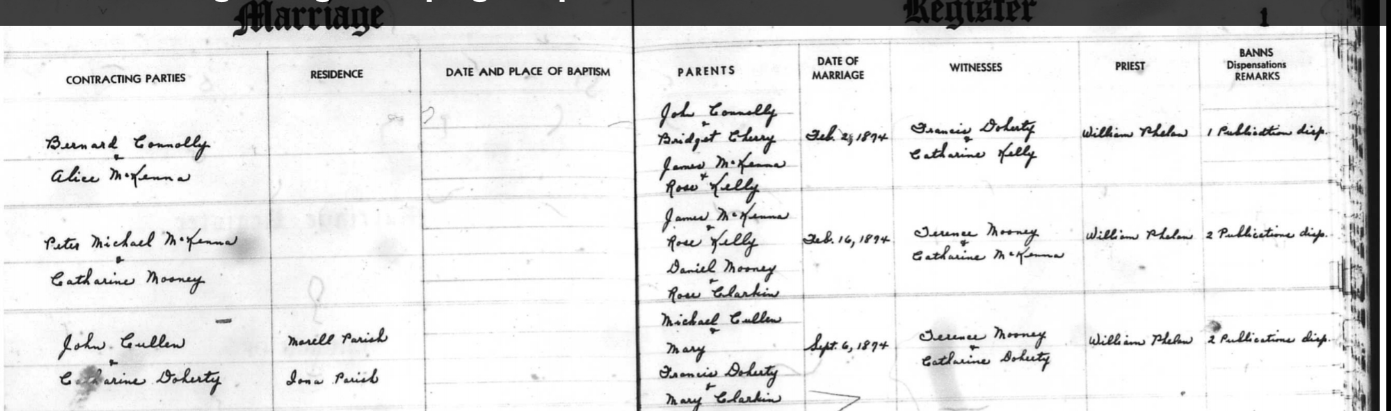 Marriage Register 1
CONTRACTING PARTIES RESIDENCE DATE AND PLACE OF BAPTISM PARENTS DATE OF MARRIAGE WITNESSES PRIEST BANNS Dispensations REMARKS
Bernard Connolly
&
Alice McKenna
John Connolly
&
Bridget Cherry
James McKenna
&
Rose Kelly
Feb. 2, 1894
Francis Doherty
&
Catharine Kelly
William Phelan
1 Publication disp.
Peter Michael McKenna
&
Catharine Mooney
James McKenna
&
Rose Kelly
Daniel Mooney
&
Rose Clarkin
Feb. 16, 1894
Terence Mooney
&
Catharine McKenna
William Phelan
2 Publications disp.
John Cullen
&
Catharine Doherty
Morell Parish
Iona Parish
Michael Cullen
&
Mary
Francis Doherty
&
Mary Clarkin
Sept. 6, 1894
Terence Mooney
&
Catharine Doherty
William Phelan
2 Publications disp.